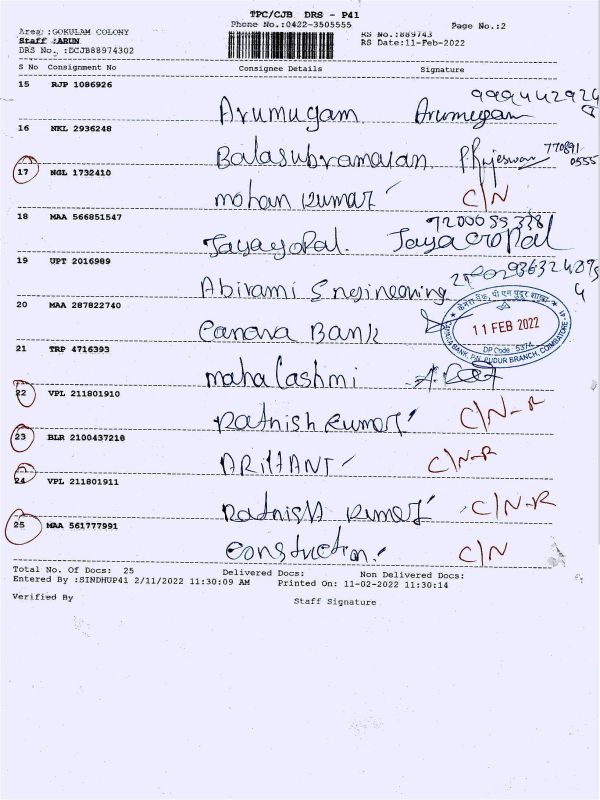 TPC/CJB DRS - P41
Phone No.:0422-3505555
Page No.:2
Area :GOKULAM COLONY
Staff :ARUN
RS No.:889743
DRS No. :DCJB88974302
RS Date:11-Feb-2022
S No Consignment No Consignee Details Signature
15 RJP 1086926
Arumugam Arumugam
16 NKL 2936248
Balasubramanian P Rajeswari
17 NGL 1732410
mohan kumar C/N
18 MAA 566851547
Jayagopal. Jayagopal
19 UPT 2016989
Abirami Engineering
20 MAA 287822740
Canara Bank
केनरा बैंक, पी एन पुदूर शाखा
11 FEB 2022
DP Code : 5374
CANARA BANK, P.N. PUDUR BRANCH, COIMBATORE - 41
21 TRP 4716393
maha Lashmi
22 VPL 211801910
Ratnish kumar C/N-R
23 BLR 2100437218
ARIHANT C/N-R
24 VPL 211801911
Ratnish kumar C/N-R
25 MAA 561777991
Construction C/N
Total No. Of Docs: 25 Delivered Docs: Non Delivered Docs:
Entered By :SINDHUP41 2/11/2022 11:30:09 AM Printed On: 11-02-2022 11:30:14
Verified By Staff Signature